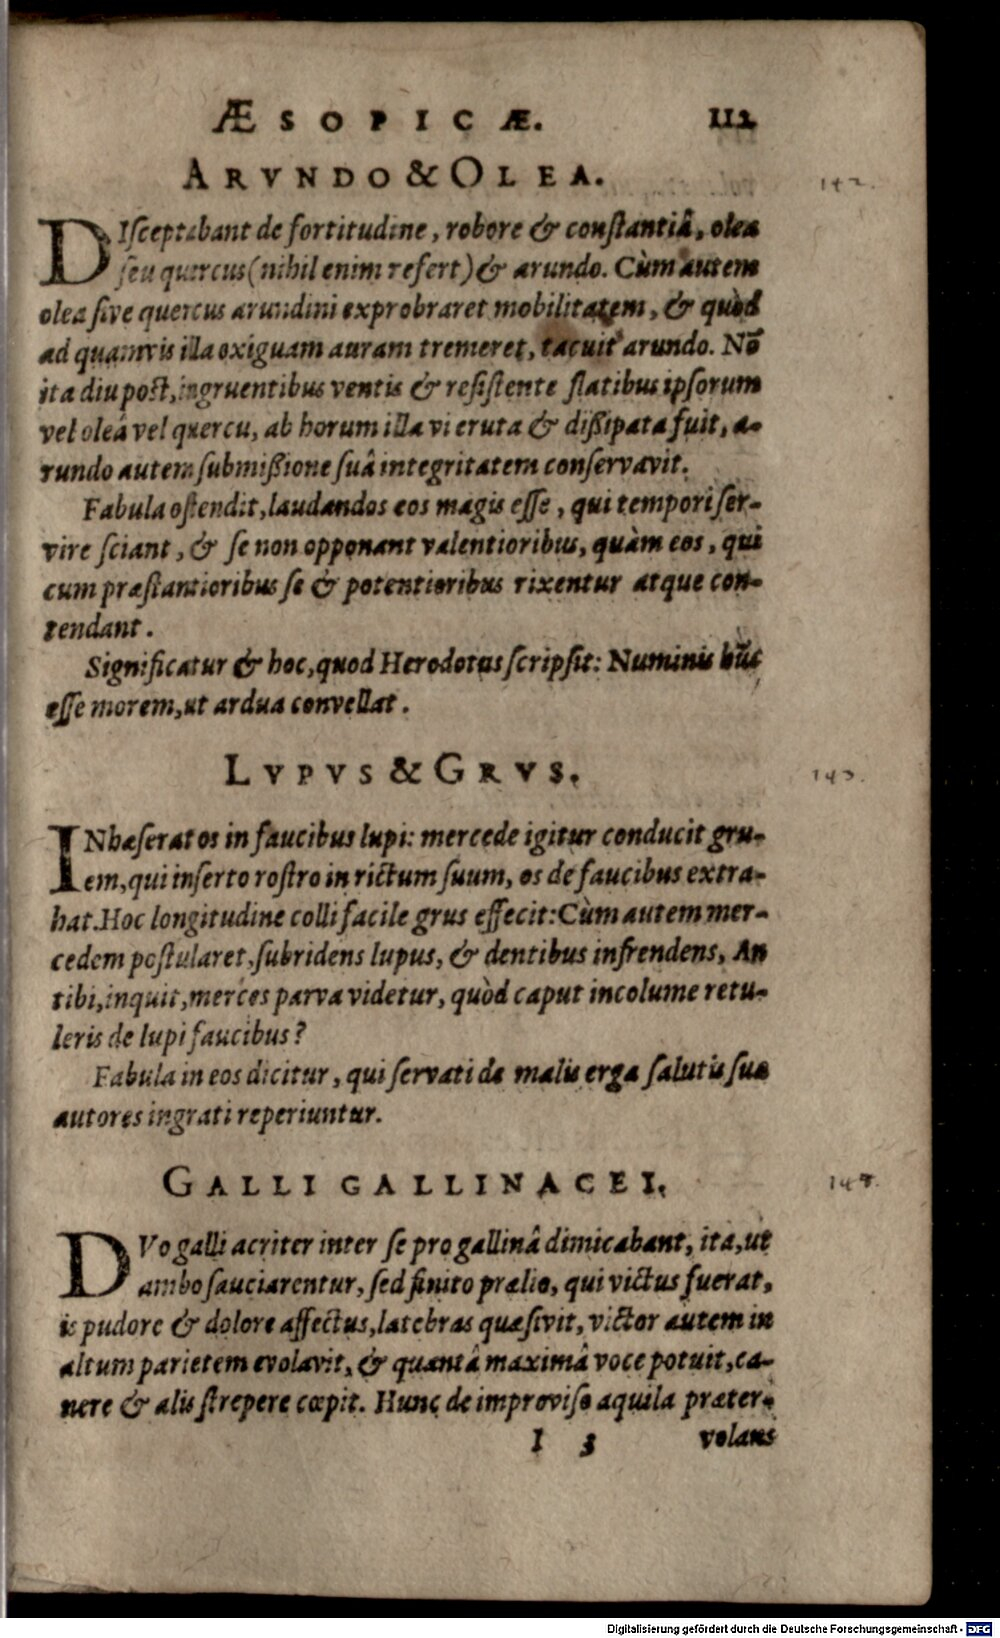 ÆSOPICÆ. 112
ARVNDO & OLEA.
142.
DIsceptabant de fortitudine, robore & constantiâ, olea
seu quercus (nihil enim refert) & arundo. Cùm autem
olea sive quercus arundini exprobraret mobilitatem, & quòd
ad quamvis illa exiguam auram tremeret, tacuit arundo. Nō
ita diu post, ingruentibus ventis & resistente flatibus ipsorum
vel oleâ vel quercu, ab horum illa vi eruta & dißipata fuit, a-
rundo autem submißione suâ integritatem conservavit.
Fabula ostendit, laudandos eos magis esse, qui tempori ser-
vire sciant, & se non opponant valentioribus, quàm eos, qui
cum præstantioribus se & potentioribus rixentur atque con-
tendant.
Significatur & hoc, quod Herodotus scripsit: Numinis hūc
esse morem, ut ardua convellat.
LVPVS & GRVS.
143.
INhæserat os in faucibus lupi: mercede igitur conducit gru-
em, qui inserto rostro in rictum suum, os de faucibus extra-
hat. Hoc longitudine colli facile grus effecit: Cùm autem mer-
cedem postularet, subridens lupus, & dentibus infrendens, An
tibi, inquit, merces parva videtur, quòd caput incolume retu-
leris de lupi faucibus?
Fabula in eos dicitur, qui servati de malis erga salutis suæ
autores ingrati reperiuntur.
GALLI GALLINACEI.
DVo galli acriter inter se pro gallinâ dimicabant, ita, ut
ambo sauciarentur, sed finito prælio, qui victus fuerat,
is pudore & dolore affectus, latebras quæsivit, victor autem in
altum parietem evolavit, & quantâ maximâ voce potuit, ca-
nere & alis strepere cœpit. Hunc de improviso aquila præter-
I 3 volans
Digitalisierung gefördert durch die Deutsche Forschungsgemeinschaft - DFG